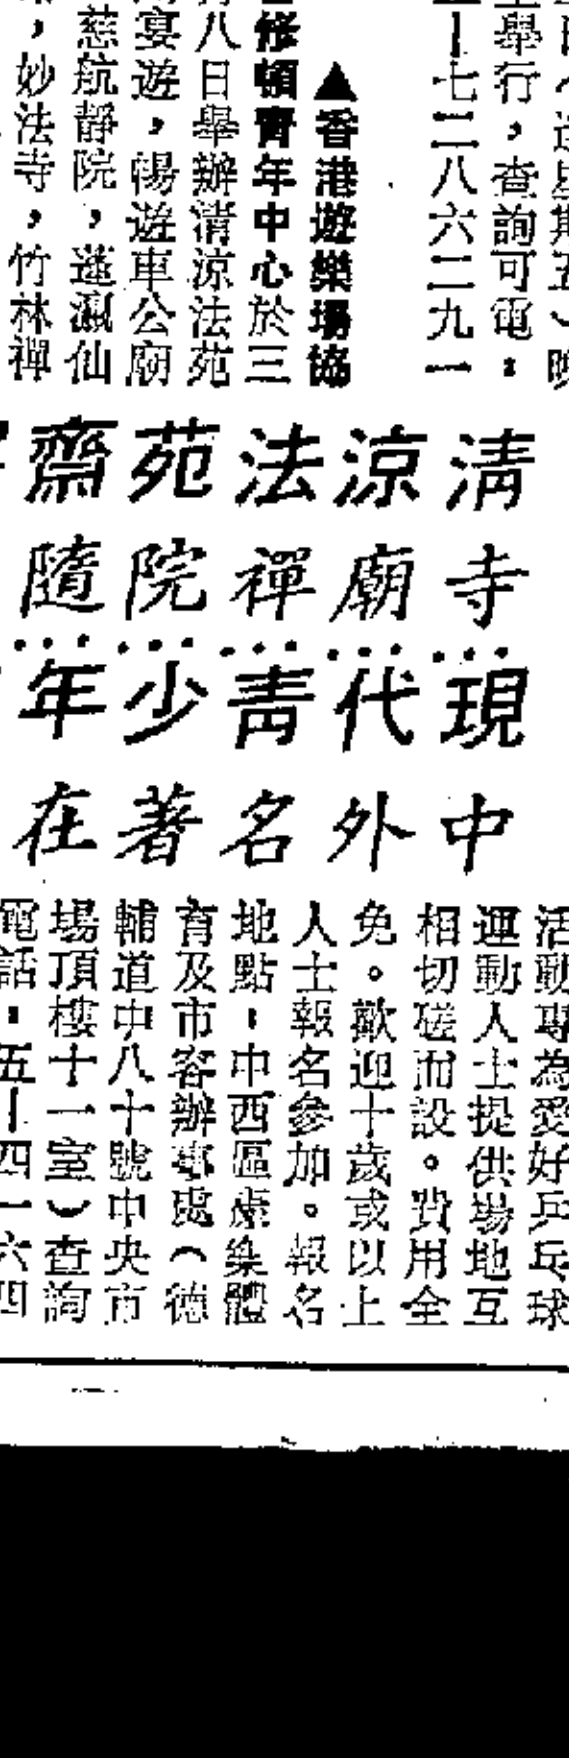 逢星期五）晚
舉行，查詢可電：
｜七二八六二九一
▲香港遊樂場協
修頓青年中心於三
八日舉辦清涼法苑
宴遊，暢遊車公廟
慈航靜院，蓬瀛仙
，妙法寺，竹林禪
清涼法苑齋
寺廟禪院隨
現代青少年
中外名著在
活動專為愛好乒乓球
運動人士提供場地互
相切磋而設。費用全
免。歡迎十歲或以上
人士報名參加。報名
地點：中西區康樂體
育及市容辦事處（德
輔道中八十號中央市
場頂樓十一室）查詢
電話：五｜四一六四